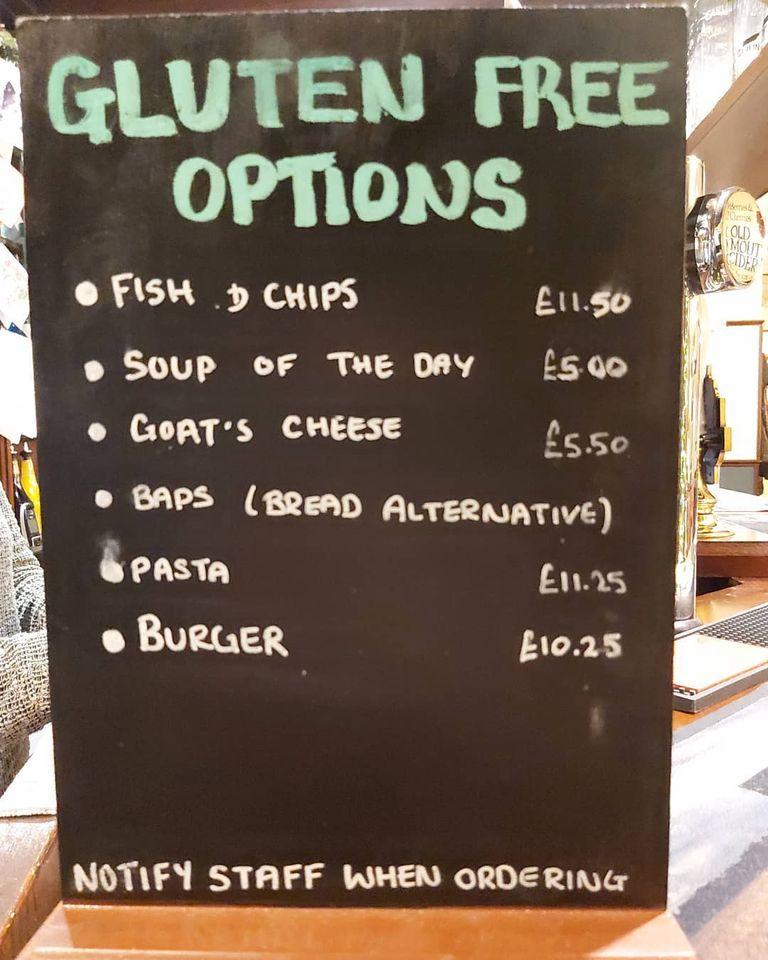 GLUTEN FREE
OPTIONS
FISH & CHIPS £11.50
SOUP OF THE DAY £5.00
GOAT'S CHEESE £5.50
BAPS (BREAD ALTERNATIVE)
PASTA £11.25
BURGER £10.25
NOTIFY STAFF WHEN ORDERING
Berries &
Cherries
OLD
MOUT
CIDER